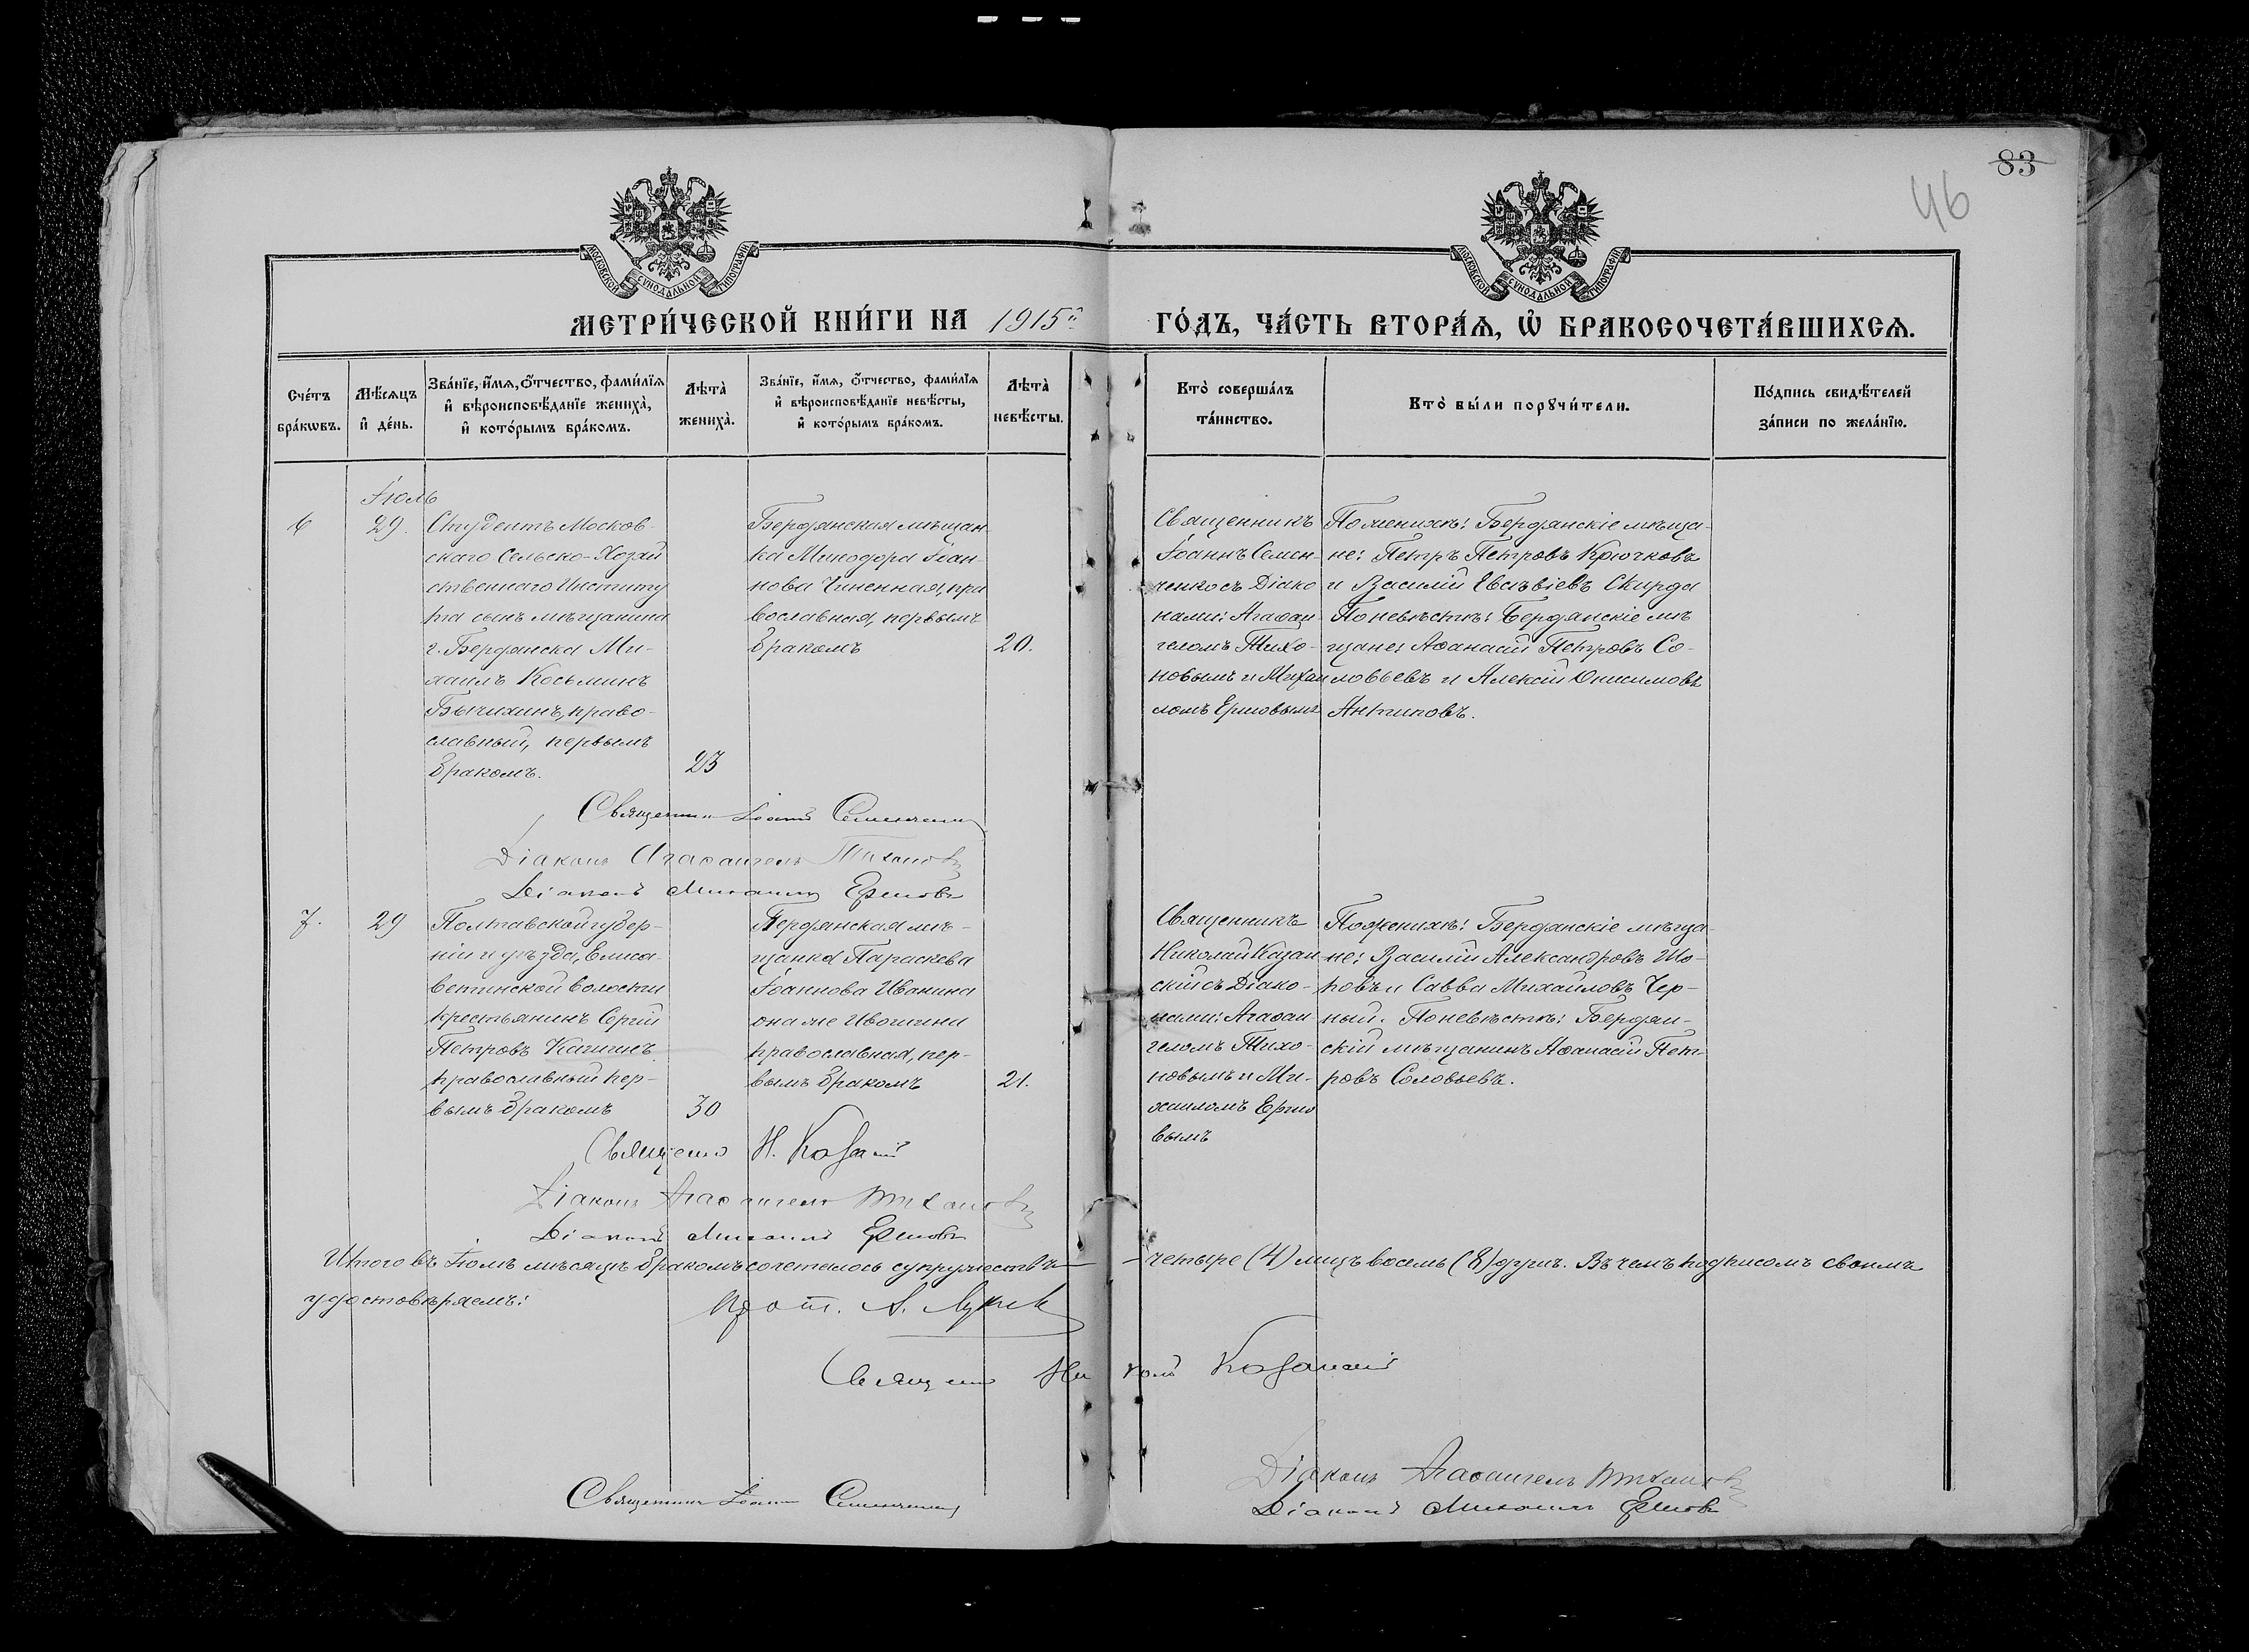 83
46
МОСКОВСКОЙ СѴНОДАЛЬНОЙ ТИПОГРАФІИ
МОСКОВСКОЙ СѴНОДАЛЬНОЙ ТИПОГРАФІИ
МЕТРИ́ЧЕСКОЙ КНИ́ГИ НА 1915й ГО́ДЪ, ЧА́СТЬ ВТОРА́Ѧ, Ѽ БРАКОСОЧЕТА́ВШИХСѦ.
Сче́тъ
бра́кѡвъ.
Мѣ́сѧцъ
и҆ де́нь.
Зва́нїе, и҆́мѧ, ѻ҆́тчество, фами́лїѧ
и҆ вѣроисповѣ́данїе жениха̀,
и҆ кото́рымъ бра́комъ.
Лѣта̀
жениха̀.
Зва́нїе, и҆́мѧ, ѻ҆́тчество, фами́лїѧ
и҆ вѣроисповѣ́данїе невѣ́сты,
и҆ кото́рымъ бра́комъ.
Лѣта̀
невѣ́сты.
Кто̀ соверша́лъ
та́инство.
Кто̀ бы́ли порꙋчи́тели.
По́дпись свидѣ́телей
за́писи по жела́нїю.
Іюль
6
29.
Студентъ Москов-
скаго Сельско-Хозяй
ственнаго Институ
та сынъ мѣщанина
г. Бердянска Ми-
хаилъ Косьминъ
Бычихинъ, право-
славный, первымъ
бракомъ.
23
Бердянская мѣщан
ка Минодора Іоан-
нова Чиненная, пра
вославная, первымъ
бракомъ
20.
Священникъ
Іоаннъ Семен-
ченко съ Діако
нами: Агаѳан-
геломъ Тихо-
новымъ и Михаи
ломъ Ершовымъ
По женихѣ: Бердянскіе мѣща-
не: Петръ Петровъ Крючковъ
и Василій Евсѣвіевъ Скирда
По невѣстѣ: Бердянскіе мѣ
щане: Аѳанасій Петровъ Со-
ловьевъ и Алексій Онисимовъ
Антиповъ.
Іоаннъ Семенченко
Діаконъ Агаѳангелъ Тихановъ
Діаконъ Михаилъ Ершовъ
7.
29
Полтавской губер-
ніи и уѣзда, Елиса-
ветинской волости
крестьянинъ Сергій
Петровъ
православный пер-
вымъ бракомъ
30
Бердянская мѣ-
щанка Параскева
Іоаннова Иванина
она же Ивошина
православная, пер-
вымъ бракомъ
21.
Священникъ
Николай Казан
скій съ Діако-
нами: Агаѳан-
геломъ Тихо-
новымъ и Ми-
хаиломъ Ершо
вымъ
По женихѣ: Бердянскіе мѣща-
не: Василій Александровъ
и Савва Михайловъ Чер-
ный. По невѣстѣ: Бердян-
скій мѣщанинъ Аѳанасій Пет-
ровъ Соловьевъ.
Н. Казанскій
Діаконъ Агаѳангелъ Тихановъ
Діаконъ Михаилъ Ершовъ
Итого въ Іюлѣ мѣсяцѣ бракомъ сочеталось супружествъ — четыре (4) лицъ восемь (8) Въ чемъ подписомъ своимъ
удостовѣряемъ:
Прот.
Николай Казанскій
Діаконъ Агаѳангелъ Тихановъ
Іоаннъ Семенченко
Діаконъ Михаилъ Ершовъ